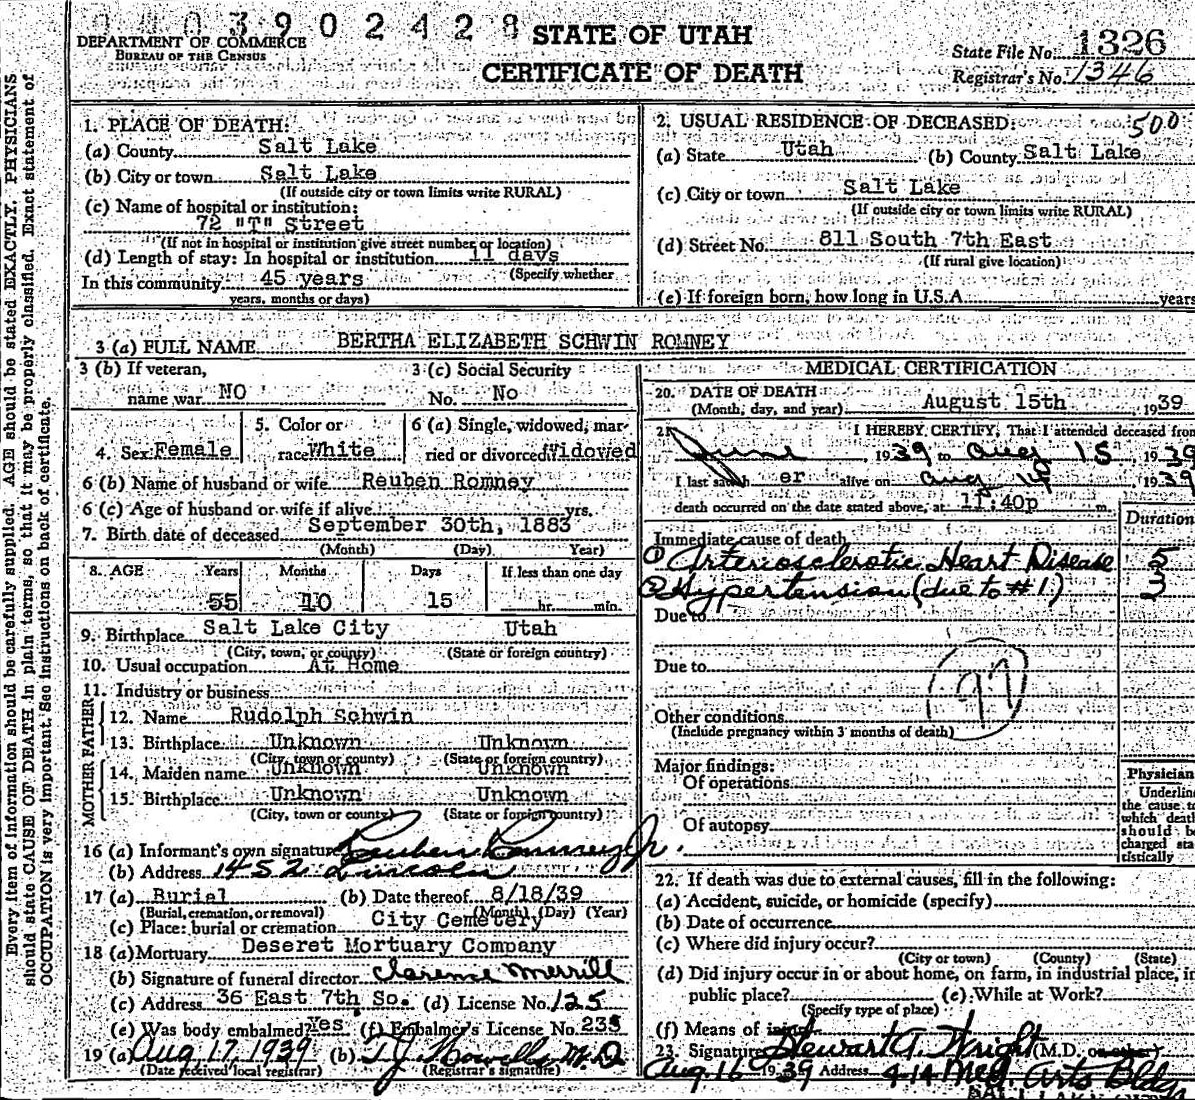 3 9 0 2 4 2 8
DEPARTMENT OF COMMERCE
BUREAU OF THE CENSUS
STATE OF UTAH
CERTIFICATE OF DEATH
State File No. 1326
Registrar's No. 1346
Every item of information should be carefully supplied. AGE should be stated EXACTLY. PHYSICIANS
should state CAUSE OF DEATH in plain terms, so that it may be properly classified. Exact statement of
OCCUPATION is very important. See instructions on back of certificate.
1. PLACE OF DEATH:
(a) County Salt Lake
(b) City or town Salt Lake
(If outside city or town limits write RURAL)
(c) Name of hospital or institution:
72 "T" Street
(If not in hospital or institution give street number or location)
(d) Length of stay: In hospital or institution 11 days
(Specify whether
In this community 45 years
years, months or days)
2. USUAL RESIDENCE OF DECEASED: 500
(a) State Utah (b) County Salt Lake
(c) City or town Salt Lake
(If outside city or town limits write RURAL)
(d) Street No. 811 South 7th East
(If rural give location)
(e) If foreign born, how long in U.S.A. years
3 (a) FULL NAME BERTHA ELIZABETH SCHWIN ROMNEY
3 (b) If veteran, name war NO
3 (c) Social Security No. No
4. Sex Female
5. Color or race White
6 (a) Single, widowed, married or divorced Widowed
6 (b) Name of husband or wife Reuben Romney
6 (c) Age of husband or wife if alive yrs.
7. Birth date of deceased September 30th, 1883
(Month) (Day) Year)
8. AGE Years Months Days If less than one day
55 10 15 hr. min.
9. Birthplace Salt Lake City Utah
(City, town, or county) (State or foreign country)
10. Usual occupation At Home
11. Industry or business
FATHER
12. Name Rudolph Schwin
13. Birthplace Unknown Unknown
(City, town or county) (State or foreign country)
MOTHER
14. Maiden name Unknown Unknown
15. Birthplace Unknown Unknown
(City, town or county) (State or foreign country)
16 (a) Informant's own signature Reuben Romney Jr.
(b) Address 1452 Lincoln
17 (a) Burial (b) Date thereof 8/18/39
(Burial, cremation, or removal) (Month) (Day) (Year)
(c) Place: burial or cremation City Cemetery
18 (a) Mortuary Deseret Mortuary Company
(b) Signature of funeral director Clarence Merrill
(c) Address 36 East 7th So. (d) License No. 125
(e) Was body embalmed? Yes (f) Embalmer's License No. 235
19 (a) Aug 17, 1939 (b) T. J. Howells M.D
(Date received local registrar) (Registrar's signature)
MEDICAL CERTIFICATION
20. DATE OF DEATH
(Month, day, and year) August 15th, 1939
21. I HEREBY CERTIFY, That I attended deceased from
June, 1939 to Aug 15, 1939
I last saw h er alive on Aug 14, 1939
death occurred on the date stated above, at 11:40p m.
Duration
Immediate cause of death
① Arteriosclerotic Heart Disease 5
② Hypertension (due to #1) 3
Due to
Due to
97
Other conditions
(Include pregnancy within 3 months of death)
Major findings:
Of operations
Of autopsy
Physician
Underline
the cause to
which death
should be
charged sta-
tistically
22. If death was due to external causes, fill in the following:
(a) Accident, suicide, or homicide (specify)
(b) Date of occurrence
(c) Where did injury occur?
(City or town) (County) (State)
(d) Did injury occur in or about home, on farm, in industrial place, in
public place? (e) While at Work?
(Specify type of place)
(f) Means of injury
23. Signature Stewart A. Wright (M.D. or other)
Aug. 16 1939 Address 414 Med. Arts Bldg